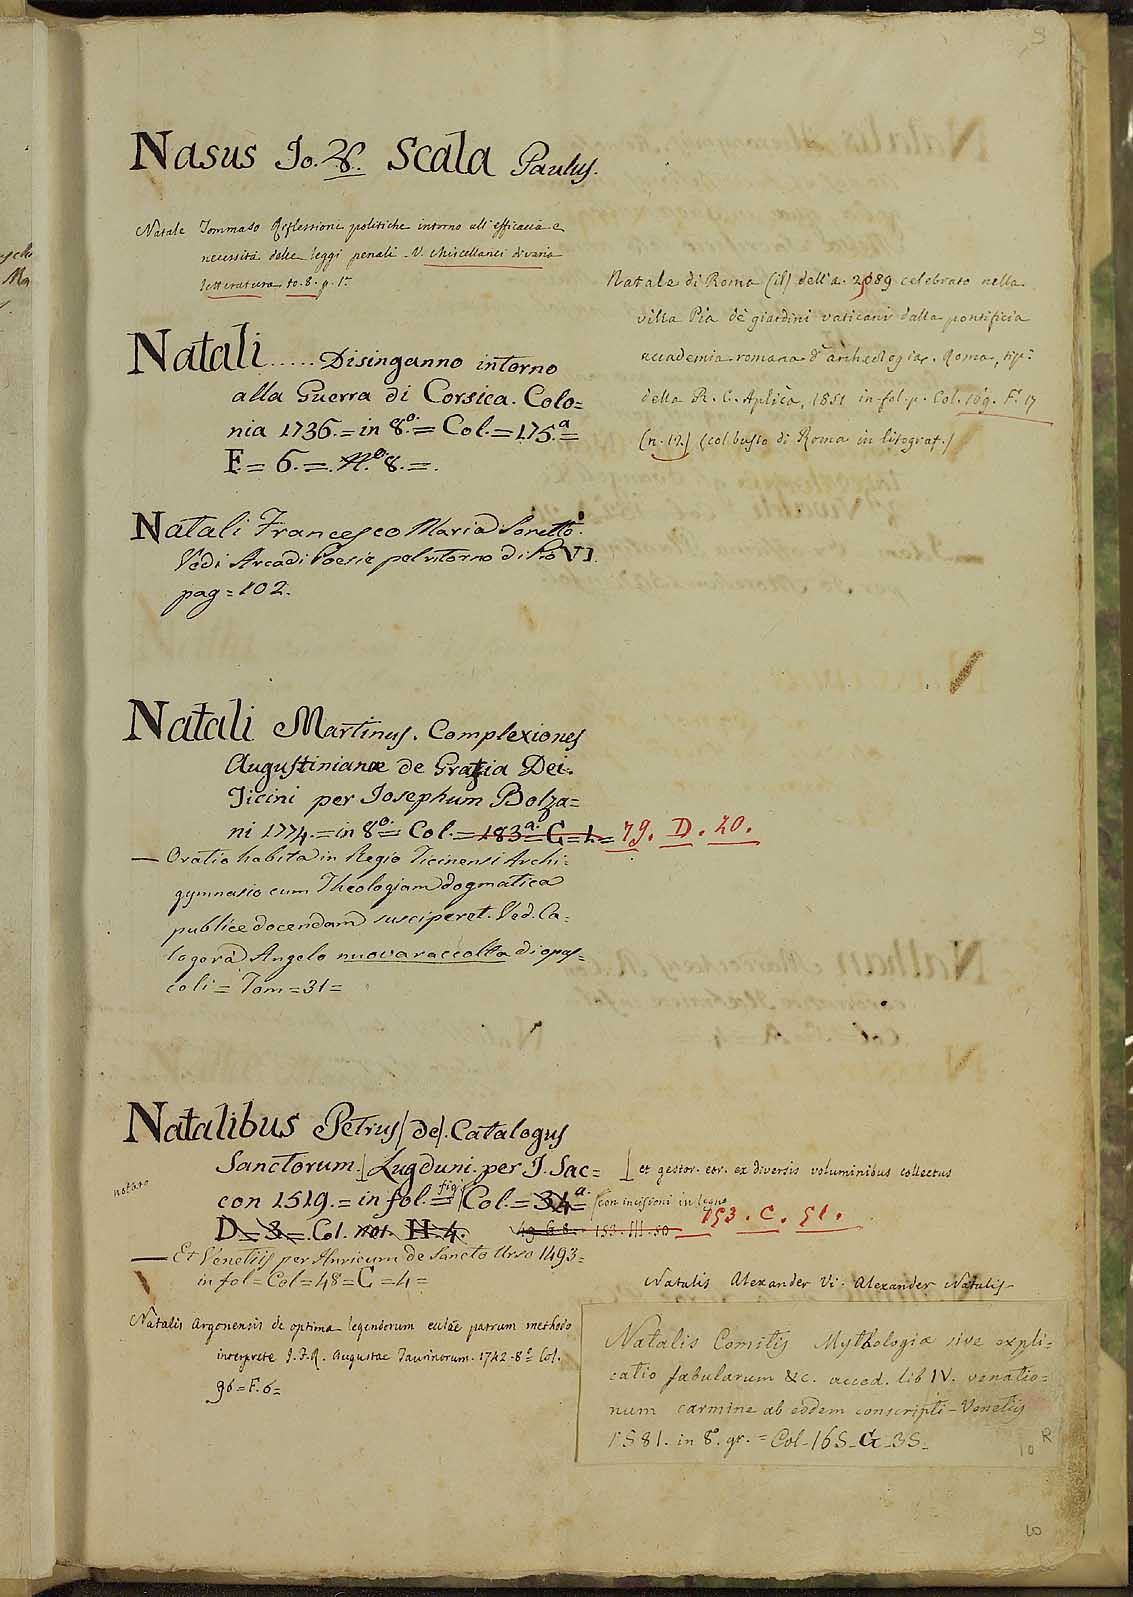 Nasus Jo. V. Scala Paulus.
Natale Tommaso Riflessioni politiche intorno all'efficacia e
necessità delle leggi penali. V. Miscellanei di varia
letteratura to. 8. p. 1ª
Natali ..... Disinganno intorno
alla Guerra di Corsica. Colo=
nia 1736. = in 8º. = Col. = 175.ª =
F. = 6. = N.º 8. =.
Natali Francesco Maria Sonetto.
Vedi Arcadi Poesie pel ritorno di Pio VI.
pag = 102.
Natali Martinus. Complexiones
Augustinianæ de Gratia Dei.
Ticini per Josephum Bolza=
ni 1774. = in 8º. = Col. = 183ª. G = 1 = 79. D. 20.
— Oratio habita in Regio Ticinensi Archi=
gymnasio cum Theologiam dogmatica
publice docendam susciperet. Ved. Ca=
logerà Angelo nuova raccolta di opus=
coli = Tom = 31 =
Natalibus Petrus (de). Catalogus
Sanctorum. | Lugduni. per J. Sac=
notato
con 1519. = in fol. = fig. Col. = 34ª.
D. = 8 = . Col. 101. H. 4. 49. G. 8. 153. III. 50
— Et Venetiis per Henricum de Sancto Urso 1493 =
in fol = Col = 48 = C = 4 =
Natalis Argonensis de optima legendorum eccłæ patrum methodo
interprete J. F. R. Augustae Taurinorum. 1742 - 8º Col.
96 = F. 6 =
Natale di Roma (il) dell'a. 2589 celebrato nella
villa Pia de' giardini vaticani dalla pontificia
accademia romana d'archeologia. Roma, tip:
della R. C. Aplica, 1851 in-fol. p. Col. 169. F. 17
(n. 12.) (col busto di Roma in litograf.)
| et gestor. eor. ex diversis voluminibus collectus
(con incisioni in legno
153. C. 51.
Natalis Alexander Vi. Alexander Natalis
Natalis Comitis Mythologiæ sive expli=
catio fabularum &c. acced. lib IV. venatio=
num carmine ab eodem conscripti - Venetiis
1581. in 8º. gr. = Col - 165 - G - 35 -
10 R
10